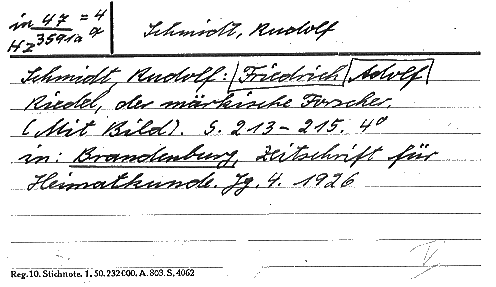 in 47 = 4
Hz 3591a a
Schmidt, Rudolf
Schmidt, Rudolf: Friedrich Adolf
Riedel, der märkische Forscher.
(Mit Bild). S. 213-215. 4°
in: Brandenburg, Zeitschrift für
Heimatkunde. Jg. 4. 1926
Reg. 10. Stichnote. 1. 50. 232000. A. 803. S. 4062